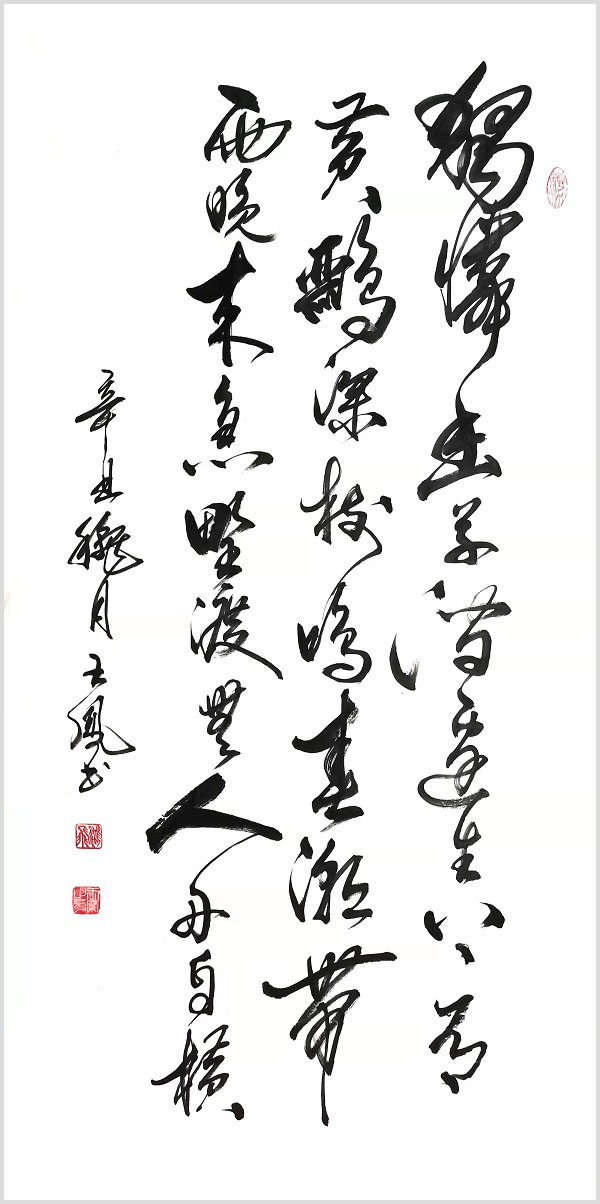 獨憐幽草澗邊生上有
黃鸝深樹鳴春潮帶
雨晚來急野渡無人舟自橫
辛丑龝月玉鳳书